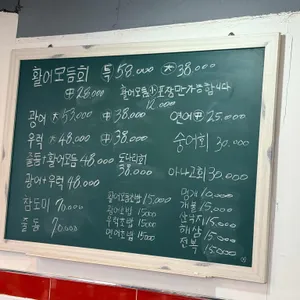 활어모듬회 특 58.000 大 38.000
中 28.000 활어모듬小 포장만가능합니다
12.000
광어 大 53.000 中 38.000 연어 中 25.000
우럭 大 48.000 中 38.000 숭어회 30.000
활어모듬 48.000 도다리회
38.000 아나고회 30.000
광어+우럭 48.000
참도미 70.000
돌돔 70.000
활어모듬초밥 15.000
광어초밥 15.000
우럭초밥 15.000
연어초밥 15.000
멍게 10.000
개불 15.000
산낙지 15.000
해삼 15.000
전복 15.000